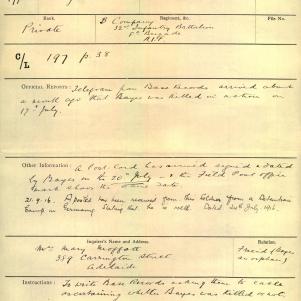 Rank.
Regiment, &c.
File No.
Private
B Company
32nd Infantry Battalion
8th Brigade
A.I.F.
C/L 197 p. 38
OFFICIAL REPORTS: Telegram from Base Records arrived about
a month ago that Bayes was killed in action on
17th July.
Other Information: A Post Card has arrived signed & dated
by Bayes on the 20th July – & the Field Post office
mark shows the same date.
21.9.16. A postal has been received from this soldier from a Detention
Camp in Germany stating that he is well. Dated 24th July 1916.
Inquirer's Name and Address.
Relation.
Mrs Mary Moffatt
388 Carrington Street
Adelaide
Friend of Bayes
an orphan
Instructions: To write Base Records asking them to cable
ascertaining whether Bayes was killed or not